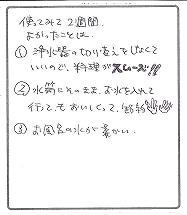 使ってみて2週間。
よかったことは、
① 浄水器の切り変えをしなくて
いいので、料理がスムーズ!!
② 水筒にそのまま、お水を入れて
行ってもおいしくって、節約
③ お風呂の水が柔かい。